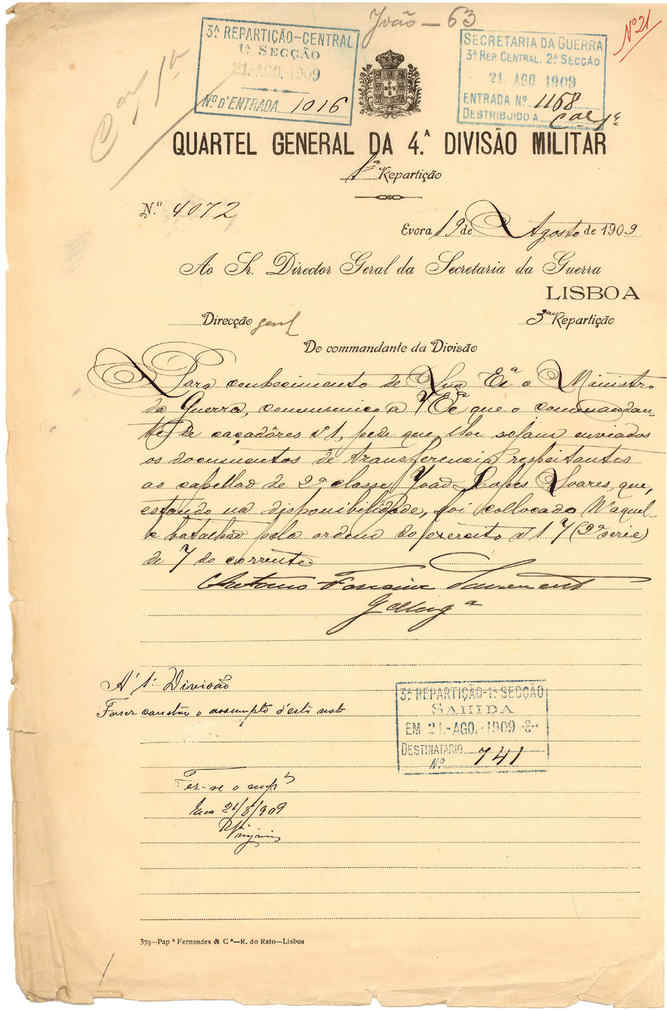 João - 63
Nº 21
3ª REPARTIÇÃO-CENTRAL
1ª SECÇÃO
21. AGO. 1909
Nº D'ENTRADA 1016
SECRETARIA DA GUERRA
3ª REP. CENTRAL. 2ª SECÇÃO
21 AGO 1909
ENTRADA Nº 1168
DESTRIBUIDO A
QUARTEL GENERAL DA 4.ª DIVISÃO MILITAR
1ª Repartição
N.º 4072
Evora 19 de Agosto de 1909
Ao Sr. Director Geral da Secretaria da Guerra
LISBOA
Direcção geral
3ª Repartição
Do commandante da Divisão
Para conhecimento de Sua Exª o Ministro
da Guerra, communico a VExª que o commandan-
te de caçadôres nº 1, pede que lhe sejam enviados
os documentos de transferencia respeitantes
ao capellão de 2ª classe João Lopes Soares que,
estando na disponibilidade, foi collocado n'aquel-
le batalhão pela ordem do exercito nº 17 (2ª serie)
de 7 do corrente
Antonio
General
A' 1ª Divisão
o assumpto d'esta nota
3ª REPARTIÇÃO-1ª SECÇÃO
SAHIDA
EM 21-AGO.-1909
DESTINATARIO
Nº 741
21/8/909
359—Pap.ª Fernandes & C.ª—R. do Rato—Lisboa